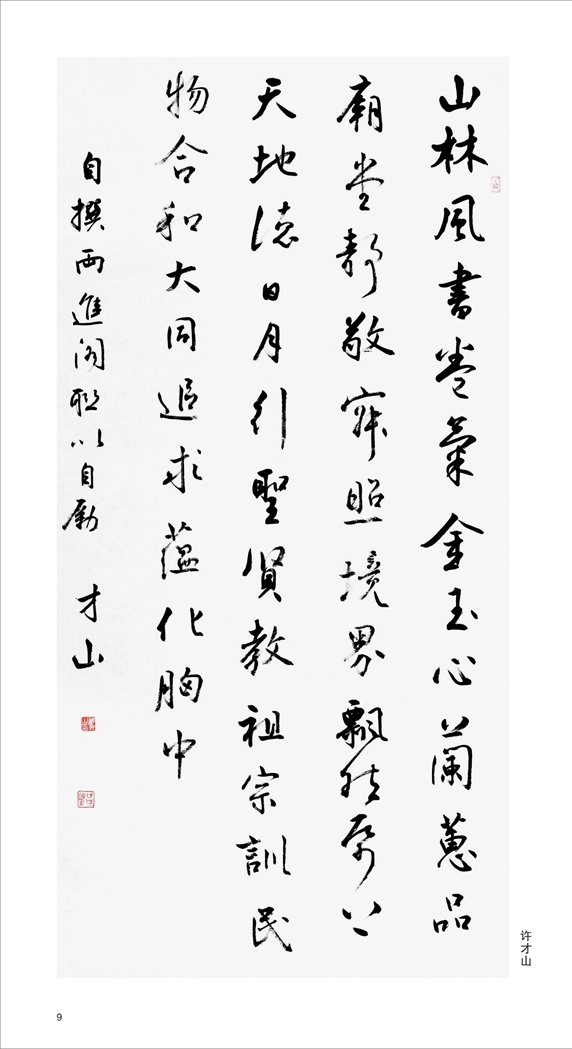 山林風書卷氣金玉心蘭蕙品
廟堂静敬寂照境界飄然上
天地德日月行聖賢教祖宗訓民
物合和大同追求蕴化胸中
自撰两進阁联以自勵 才山
许才山
9